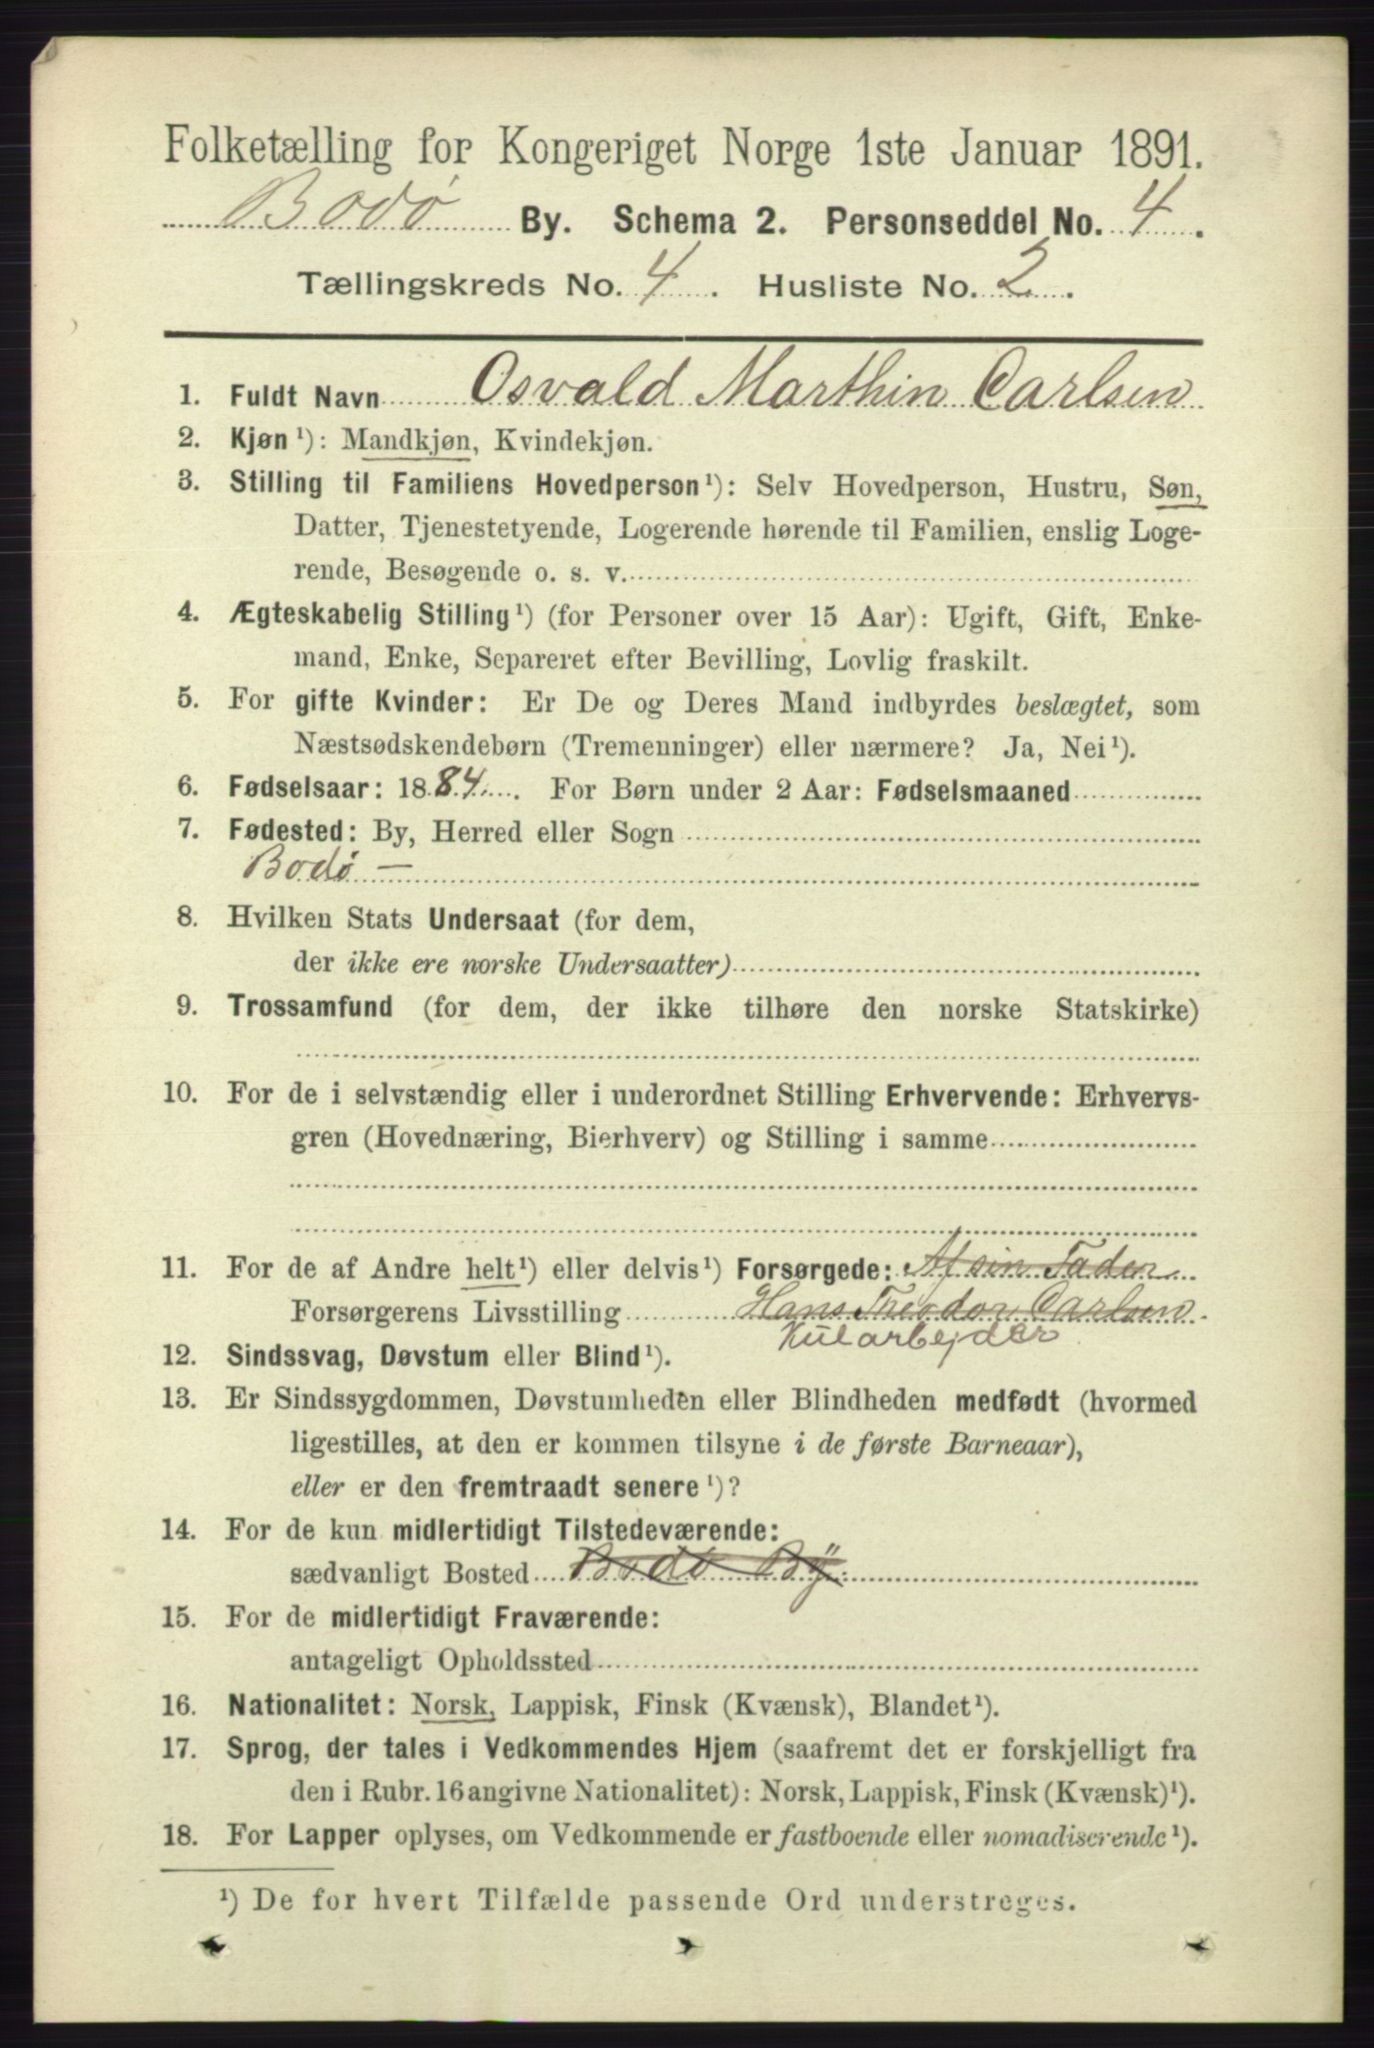 Folketælling for Kongeriget Norge 1ste Januar 1891.
Bodø By. Schema 2. Personseddel No. 4.
Tællingskreds No. 4. Husliste No. 2.
1. Fuldt Navn Osvald Marthin Carlsen
2. Kjøn ¹): Mandkjøn, Kvindekjøn.
3. Stilling til Familiens Hovedperson ¹): Selv Hovedperson, Hustru, Søn,
Datter, Tjenestetyende, Logerende hørende til Familien, enslig Loge-
rende, Besøgende o. s. v.
4. Ægteskabelig Stilling ¹) (for Personer over 15 Aar): Ugift, Gift, Enke-
mand, Enke, Separeret efter Bevilling, Lovlig fraskilt.
5. For gifte Kvinder: Er De og Deres Mand indbyrdes beslægtet, som
Næstsødskendebørn (Tremenninger) eller nærmere? Ja, Nei ¹).
6. Fødselsaar: 1884. For Børn under 2 Aar: Fødselsmaaned
7. Fødested: By, Herred eller Sogn
Bodø —
8. Hvilken Stats Undersaat (for dem,
der ikke ere norske Undersaatter)
9. Trossamfund (for dem, der ikke tilhøre den norske Statskirke)
10. For de i selvstændig eller i underordnet Stilling Erhvervende: Erhvervs-
gren (Hovednæring, Bierhverv) og Stilling i samme
11. For de af Andre helt ¹) eller delvis ¹) Forsørgede: Af sin Fader
Forsørgerens Livsstilling Hans Theodor Carlsen
Kularbejder
12. Sindssvag, Døvstum eller Blind ¹).
13. Er Sindssygdommen, Døvstumheden eller Blindheden medfødt (hvormed
ligestilles, at den er kommen tilsyne i de første Barneaar),
eller er den fremtraadt senere ¹)?
14. For de kun midlertidigt Tilstedeværende:
sædvanligt Bosted Bodø By
15. For de midlertidigt Fraværende:
antageligt Opholdssted
16. Nationalitet: Norsk, Lappisk, Finsk (Kvænsk), Blandet ¹).
17. Sprog, der tales i Vedkommendes Hjem (saafremt det er forskjelligt fra
den i Rubr. 16 angivne Nationalitet): Norsk, Lappisk, Finsk (Kvænsk) ¹).
18. For Lapper oplyses, om Vedkommende er fastboende eller nomadiserende ¹).
¹) De for hvert Tilfælde passende Ord understreges.